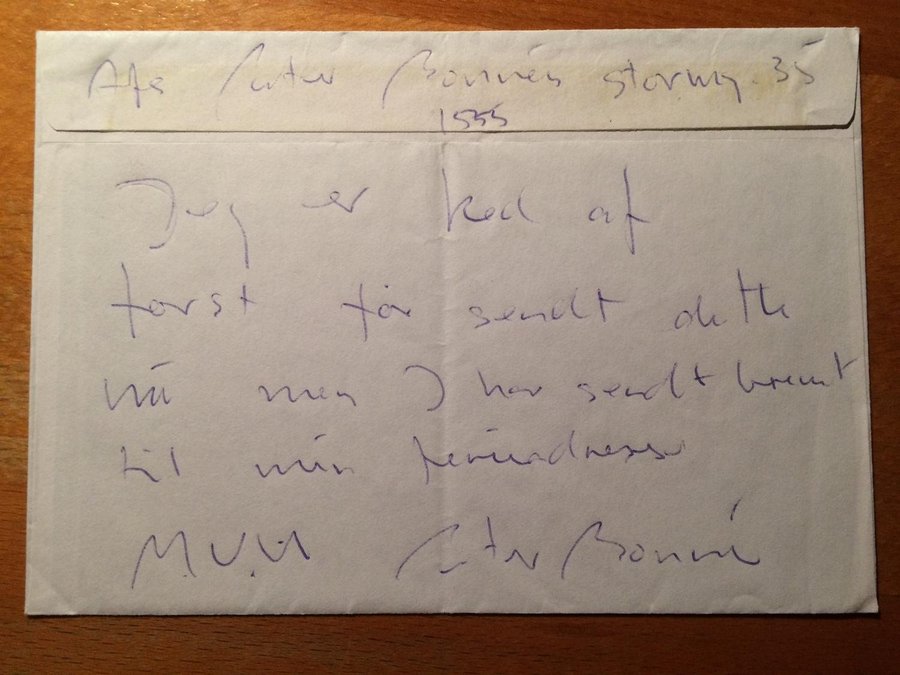 Afs Peter Bonnén Stormg. 35
1555
Jeg er ked af
først får sendt dette
nu men I har sendt brevet
til min ferieadresse
M.V.H Peter Bonnén